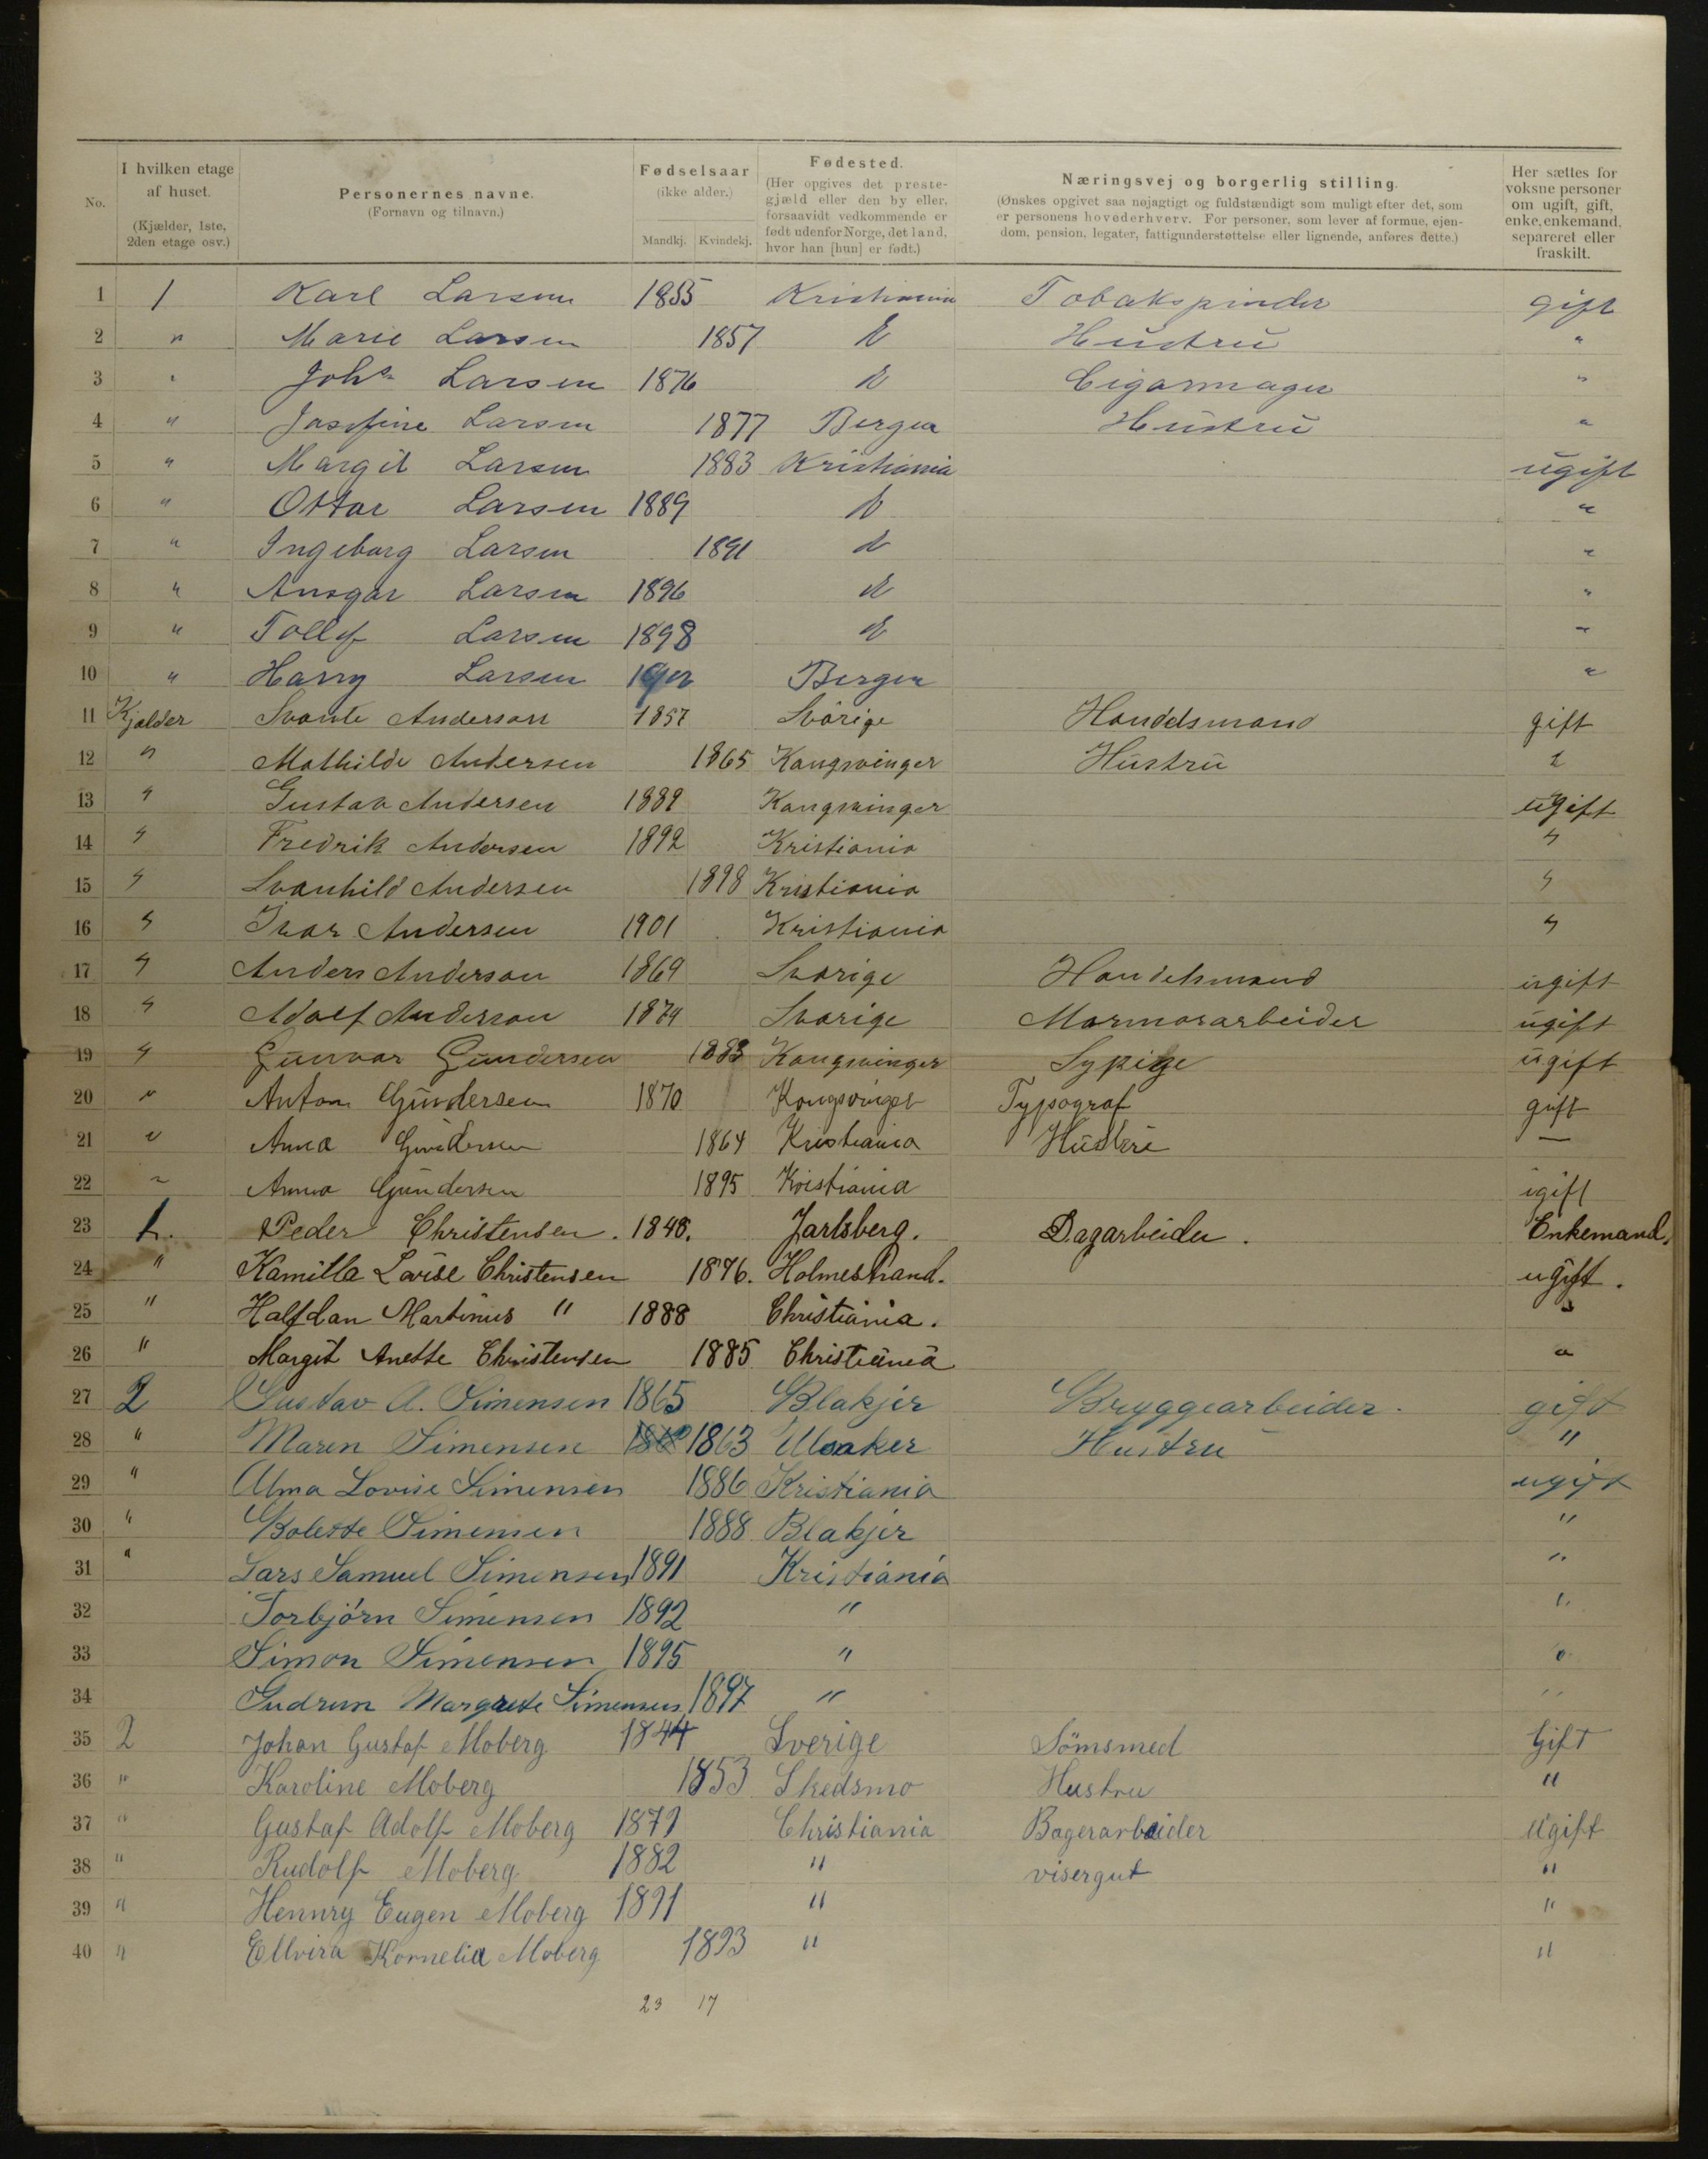 No. I hvilken etage af huset. (Kjælder, 1ste, 2den etage osv.) Personernes navne. (Fornavn og tilnavn.) Fødselsaar (ikke alder.) Mandkj. Kvindekj. Fødested. (Her opgives det prestegjæld eller den by eller, forsaavidt vedkommende er født udenfor Norge, det land, hvor han [hun] er født.) Næringsvej og borgerlig stilling. (Ønskes opgivet saa nøjagtigt og fuldstændigt som muligt efter det, som er personens hovederhverv. For personer, som lever af formue, ejendom, pension, legater, fattigunderstøttelse eller lignende, anføres dette.) Her sættes for voksne personer om ugift, gift, enke, enkemand, separeret eller fraskilt.
1 1 Karl Larsen 1855 Kristiania Tobakspinder gift
2 " Marie Larsen 1857 Hustru "
3 " Johs Larsen 1876 Cigarmager "
4 " Josefine Larsen 1877 Bergen Hustru "
5 " Margit Larsen 1883 Kristiania ugift
6 " Ottar Larsen 1889 "
7 " Ingeborg Larsen 1891 "
8 " Ansgar Larsen 1896 "
9 " Tollef Larsen 1898 "
10 " Harry Larsen Bergen "
11 Kjælder Svante Anderson 1857 Svärige Handelsmand gift
12 " Mathilde Andersen 1865 Kongsvinger Hustru
13 " Gustav Andersen 1889 Kongsvinger ugift
14 " Fredrik Andersen 1892 Kristiania "
15 " Svanhild Andersen 1898 Kristiania "
16 " Ivar Andersen 1901 Kristiania "
17 " Anders Anderson 1869 Svarige Handelsmand ugift
18 " Adolf Anderson 1874 Svarige Marmorarbeider ugift
19 " Gunvor Gundersen 1883 Kongsvinger Sypige ugift
20 " Anton Gundersen 1870 Kongsvinger Typograf gift
21 " Anna Gundersen 1864 Kristiania Hustru —
22 " Anna Gundersen 1895 Kristiania ugift
23 1. Peder Christensen. 1848. Jarlsberg. Dagarbeider. Enkemand.
24 " Kamilla Lovise Christensen 1876. Holmestrand. ugift.
25 " Halfdan Martinus " 1888 Christiania. "
26 " Margit Anette Christensen 1885 Christiania "
27 2 Gustav A. Simensen 1865 Blakjer Bryggearbeider. gift
28 " Maren Simensen 1863 Ulsaker Hustru "
29 " Alma Lovise Simensen 1886 Kristiania ugift
30 " Bolette Simensen 1888 Blakjer "
31 " Lars Samuel Simensen 1891 Kristiania "
32 Torbjörn Simensen 1892 " "
33 Simon Simensen 1895 " "
34 Gudrun Margrete Simensen 1897 " "
35 2 Johan Gustaf Moberg 1844 Sverige Sömsmed Gift
36 " Karoline Moberg 1853 Skedsmo Hustru "
37 " Gustaf Adolf Moberg 1871 Christiania Bagerarbeider Ugift
38 " Rudolf Moberg 1882 " visergut "
39 " Hennry Eugen Moberg 1891 " "
40 " Ellvira Kornelia Moberg 1893 " "
23 17